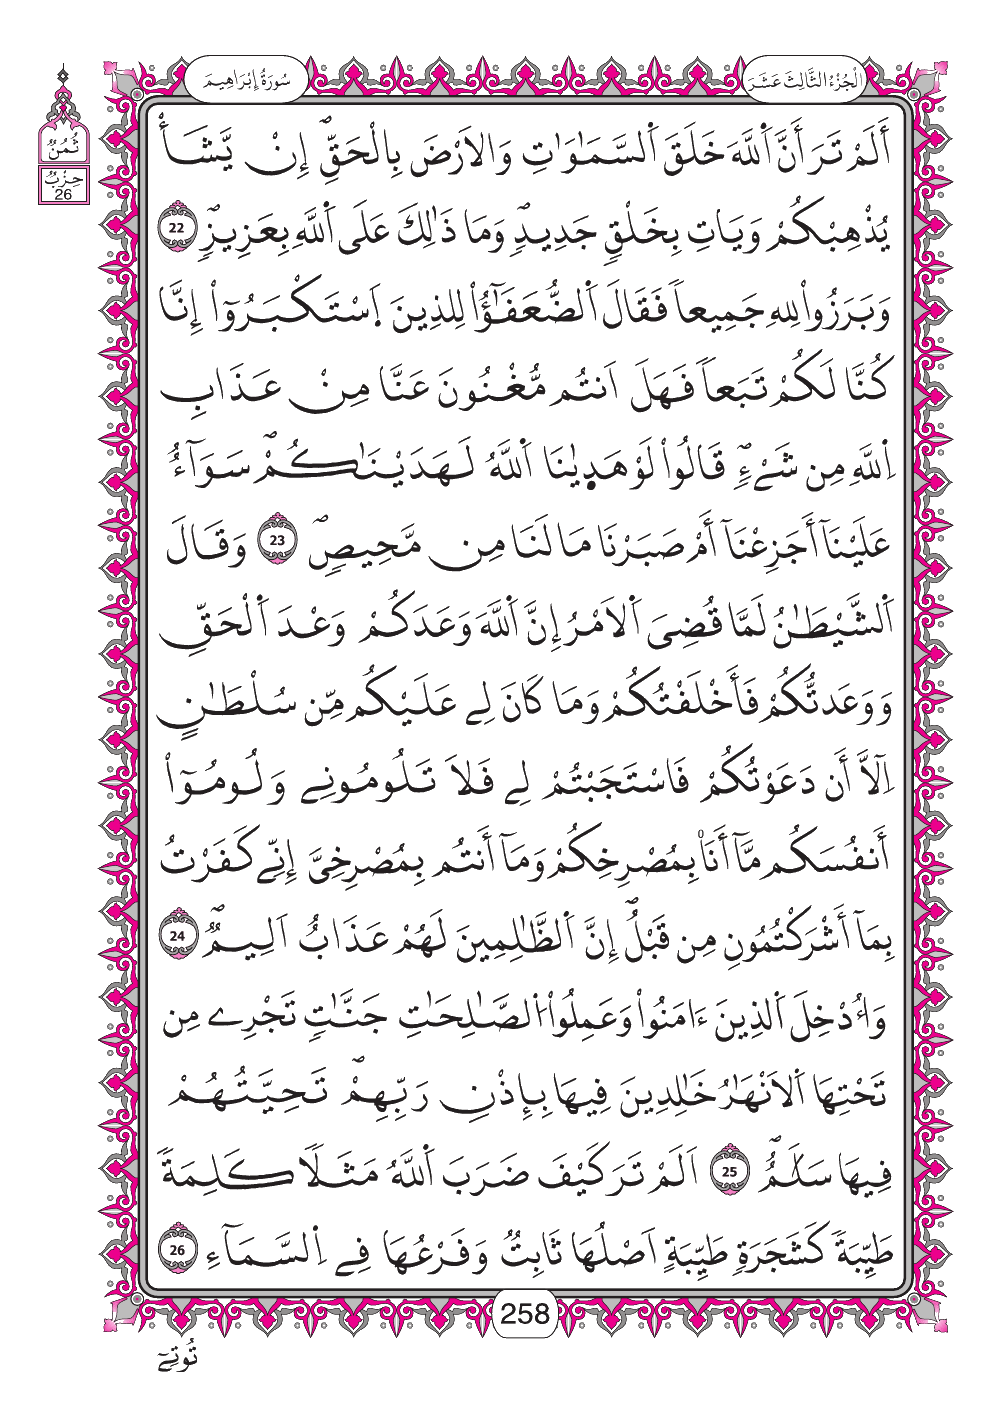 سُورَةُ إِبْرَاهِيمَ
الْجُزْءُ الثَّالِثَ عَشَرَ
ثُمُنٌ
حِزْبٌ
26
أَلَمْ تَرَ أَنَّ اَ۬للَّهَ خَلَقَ اَ۬لسَّمَٰوَٰتِ وَالَارْضَ بِالْحَقِّۖ إِنْ يَّشَأْ
يُذْهِبْكُمْ وَيَاتِ بِخَلْقٖ جَدِيدٖۖ وَمَا ذَٰلِكَ عَلَى اَ۬للَّهِ بِعَزِيزٖۖ 22
وَبَرَزُواْ لِلهِ جَمِيعاٗ فَقَالَ اَ۬لضُّعَفَٰٓؤُاْ لِلذِينَ اَ۪سْتَكْبَرُوٓاْ إِنَّا
كُنَّا لَكُمْ تَبَعاٗ فَهَلَ اَنتُم مُّغْنُونَ عَنَّا مِنْ عَذَابِ
اِ۬للَّهِ مِن شَيْءٖۖ قَالُواْ لَوْ هَد۪يٰنَا اَ۬للَّهُ لَهَدَيْنَٰكُمْۖ سَوَآءٌ
عَلَيْنَآ أَجَزِعْنَآ أَمْ صَبَرْنَا مَا لَنَا مِن مَّحِيصٖۖ 23 وَقَالَ
اَ۬لشَّيْطَٰنُ لَمَّا قُضِيَ اَ۬لَامْرُ إِنَّ اَ۬للَّهَ وَعَدَكُمْ وَعْدَ اَ۬لْحَقِّ
وَوَعَدتُّكُمْ فَأَخْلَفْتُكُمْ وَمَا كَانَ لِے عَلَيْكُم مِّن سُلْطَٰنٍ
اِلَّآ أَن دَعَوْتُكُمْ فَاسْتَجَبْتُمْ لِے فَلَا تَلُومُونِے وَلُومُوٓاْ
أَنفُسَكُم مَّآ أَنَا۠ بِمُصْرِخِكُمْ وَمَآ أَنتُم بِمُصْرِخِيَّ إِنِّے كَفَرْتُ
بِمَآ أَشْرَكْتُمُونِ مِن قَبْلُۖ إِنَّ اَ۬لظَّٰلِمِينَ لَهُمْ عَذَابٌ اَلِيمٌۖ 24
وَأُدْخِلَ اَ۬لذِينَ ءَامَنُواْ وَعَمِلُواْ اُ۬لصَّٰلِحَٰتِ جَنَّٰتٖ تَجْرِے مِن
تَحْتِهَا اَ۬لَانْهَٰرُ خَٰلِدِينَ فِيهَا بِإِذْنِ رَبِّهِمْۖ تَحِيَّتُهُمْ
فِيهَا سَلَٰمٌۖ 25 اَلَمْ تَرَ كَيْفَ ضَرَبَ اَ۬للَّهُ مَثَلاٗ كَلِمَةٗ
طَيِّبَةٗ كَشَجَرَةٖ طَيِّبَةٍ اَصْلُهَا ثَابِتٞ وَفَرْعُهَا فِے اِ۬لسَّمَآءِ 26
258
تُوتِےٓ